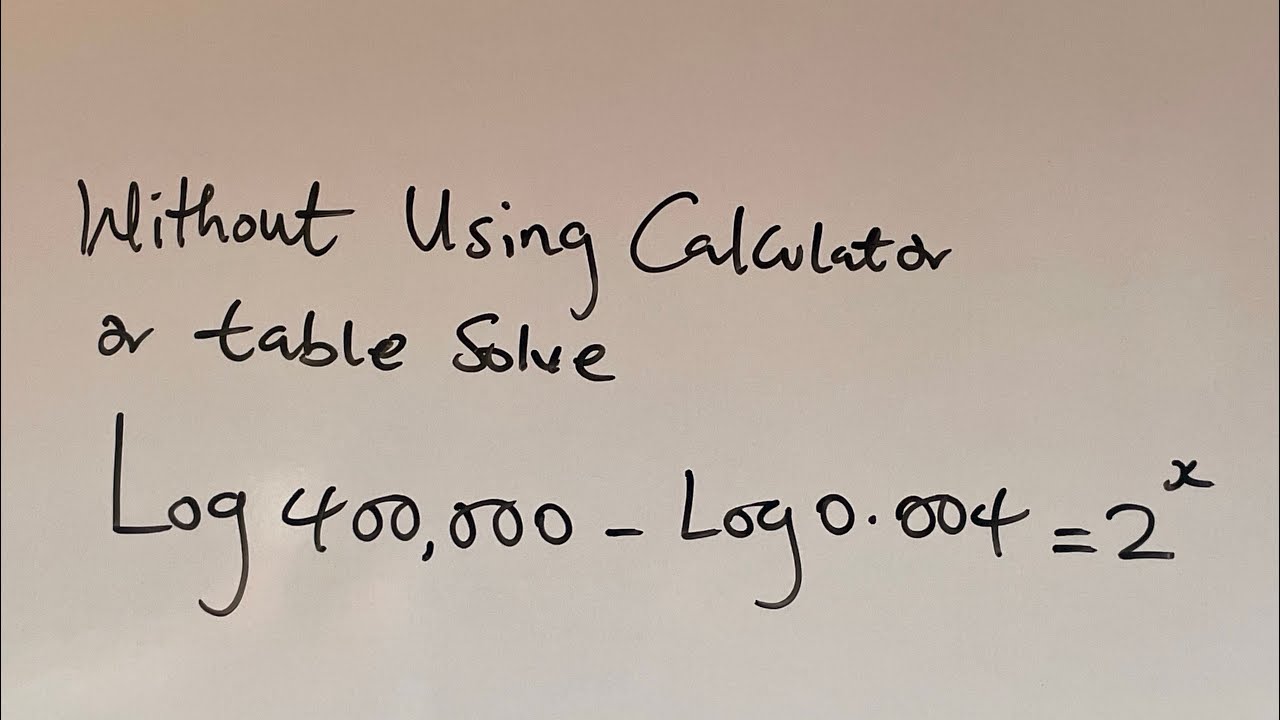 Without Using Calculator
or table Solve
Log 400,000 - Log 0.004 = 2^x